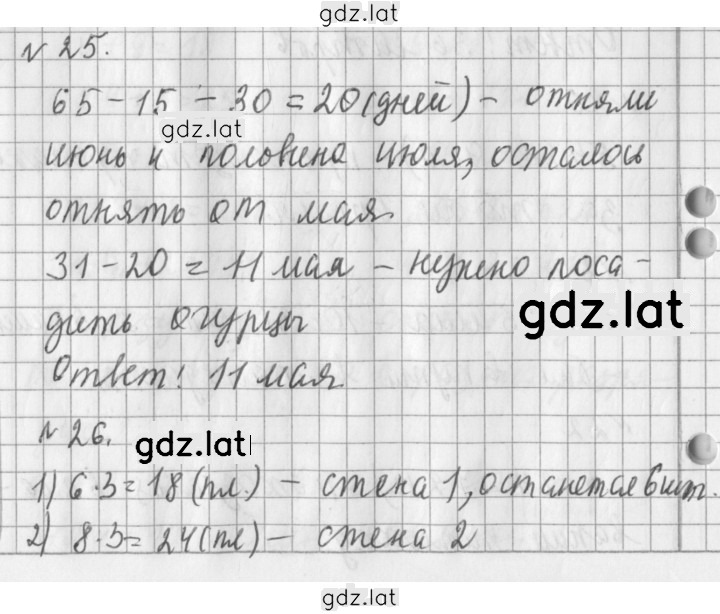 gdz.lat
№ 25.
65 - 15 - 30 = 20 (дней) - отняли
gdz.lat
июнь и половина июля, осталось
отнять от мая
31 - 20 = 11 мая - нужно поса-
gdz.lat
дить огурцы
Ответ: 11 мая
№ 26.
gdz.lat
1) 6·3=18 (пл.) - стена 1, останется 6 шт.
2) 8·3= 24 (пл) - стена 2
gdz.lat